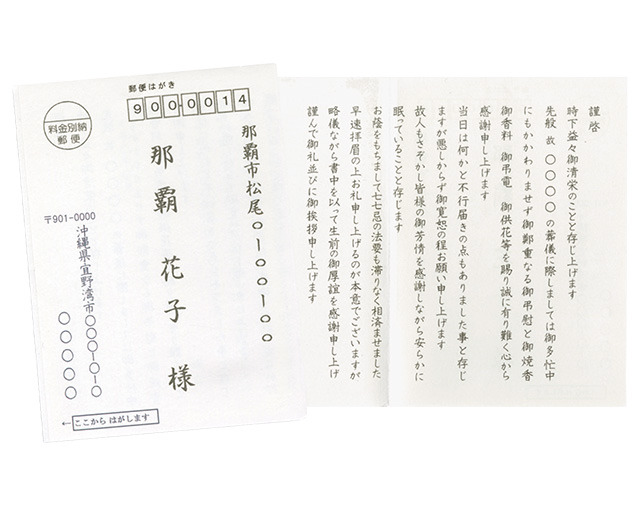 郵便はがき
900-0014
料金別納
郵便
那覇市松尾〇ー〇〇ー〇〇
那覇 花子 様
〒901-0000
沖縄県宜野湾市〇〇〇ー〇ー〇
〇〇〇〇〇
←ここから はがします
謹啓
時下益々御清栄のことと存じ上げます
先般 故 〇〇〇〇 の葬儀に際しましては御多忙中
にもかかわりませず御鄭重なる御弔慰と御焼香
御香料 御弔電 御供花等を賜り誠に有り難く心から
感謝申し上げます
当日は何かと不行届きの点もありました事と存じ
ますが悪しからず御寛恕の程お願い申し上げます
故人もさぞかし皆様の御芳情を感謝しながら安らかに
眠っていることと存じます
お蔭をもちまして七七忌の法要も滞りなく相済ませました
早速拝眉の上お礼申し上げるのが本意でございますが
略儀ながら書中を以って生前の御厚誼を感謝申し上げ
謹んで御礼並びに御挨拶申し上げます